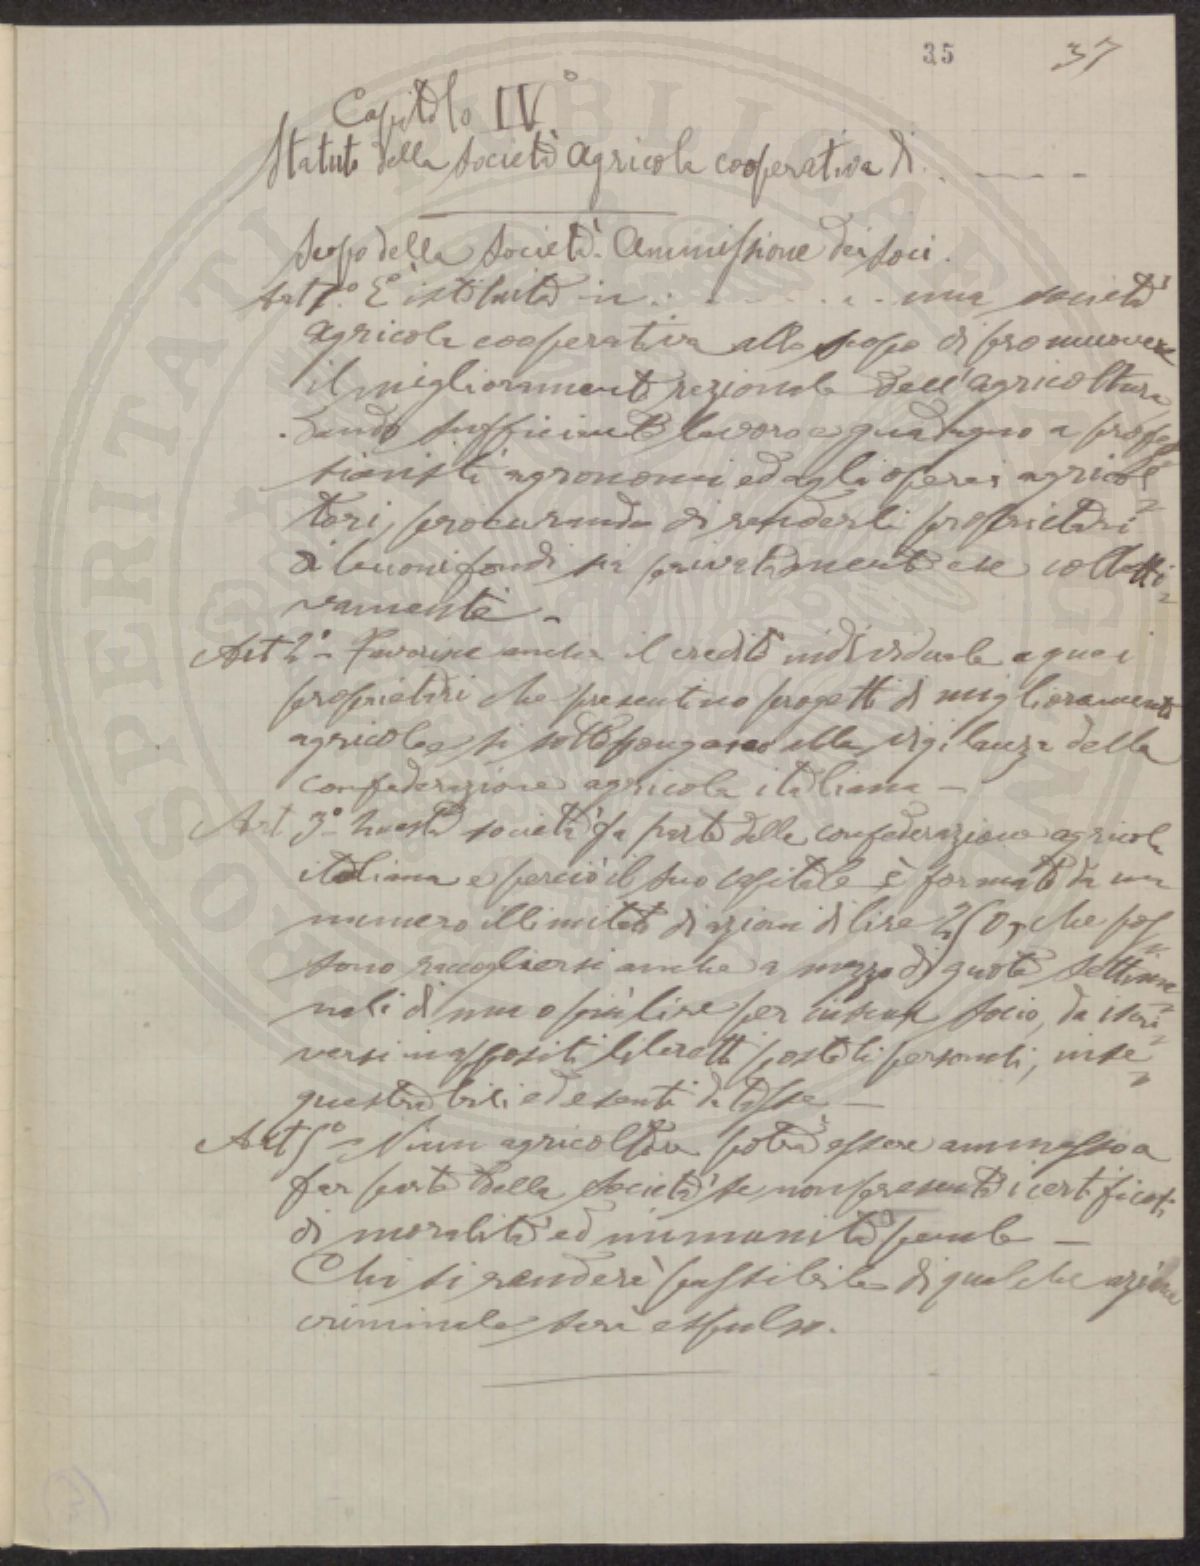 35 37
Capitolo IV°
Statuto della Società Agricola cooperativa di . - - - -
Scopo della Società. Ammissione dei soci.
Art 1.° E' istituita in . . . . . . . . una società
agricola cooperativa allo scopo di promuovere
il miglioramento razionale dell'agricoltura
dando sufficiente lavoro e guadagno a profes
sionisti agronomi ed agli operai agricol=
tori, procurando di renderli proprietari
di buoni fondi sia privatamente che colletti=
vamente. -
Art 2° - Favorire anche il credito individuale a quei
proprietari che presentino progetti di miglioramento
agricolo e si sottopongano alla vigilanza della
confederazione agricola italiana -
Art 3° - Questa società fa parte della confederazione agricola
italiana e perciò il suo capitale è formato da un
numero illimitato di azioni di lire 250, che pos=
sono raccogliersi anche a mezzo di quote settima=
nali di una o più lire per ciascun socio, da iscri=
versi in appositi libretti postali personali, inse=
questrabili ed esenti da tasse -
Art 5° - Niun agricoltore potrà essere ammesso a
far parte della Società se non presenta i certificati
di moralità ed immunità penale -
Chi si renderà passibile di qualche azione
criminale sarà espulso.
BIBLIOTECA
PROSPERITATI PUBLICAE